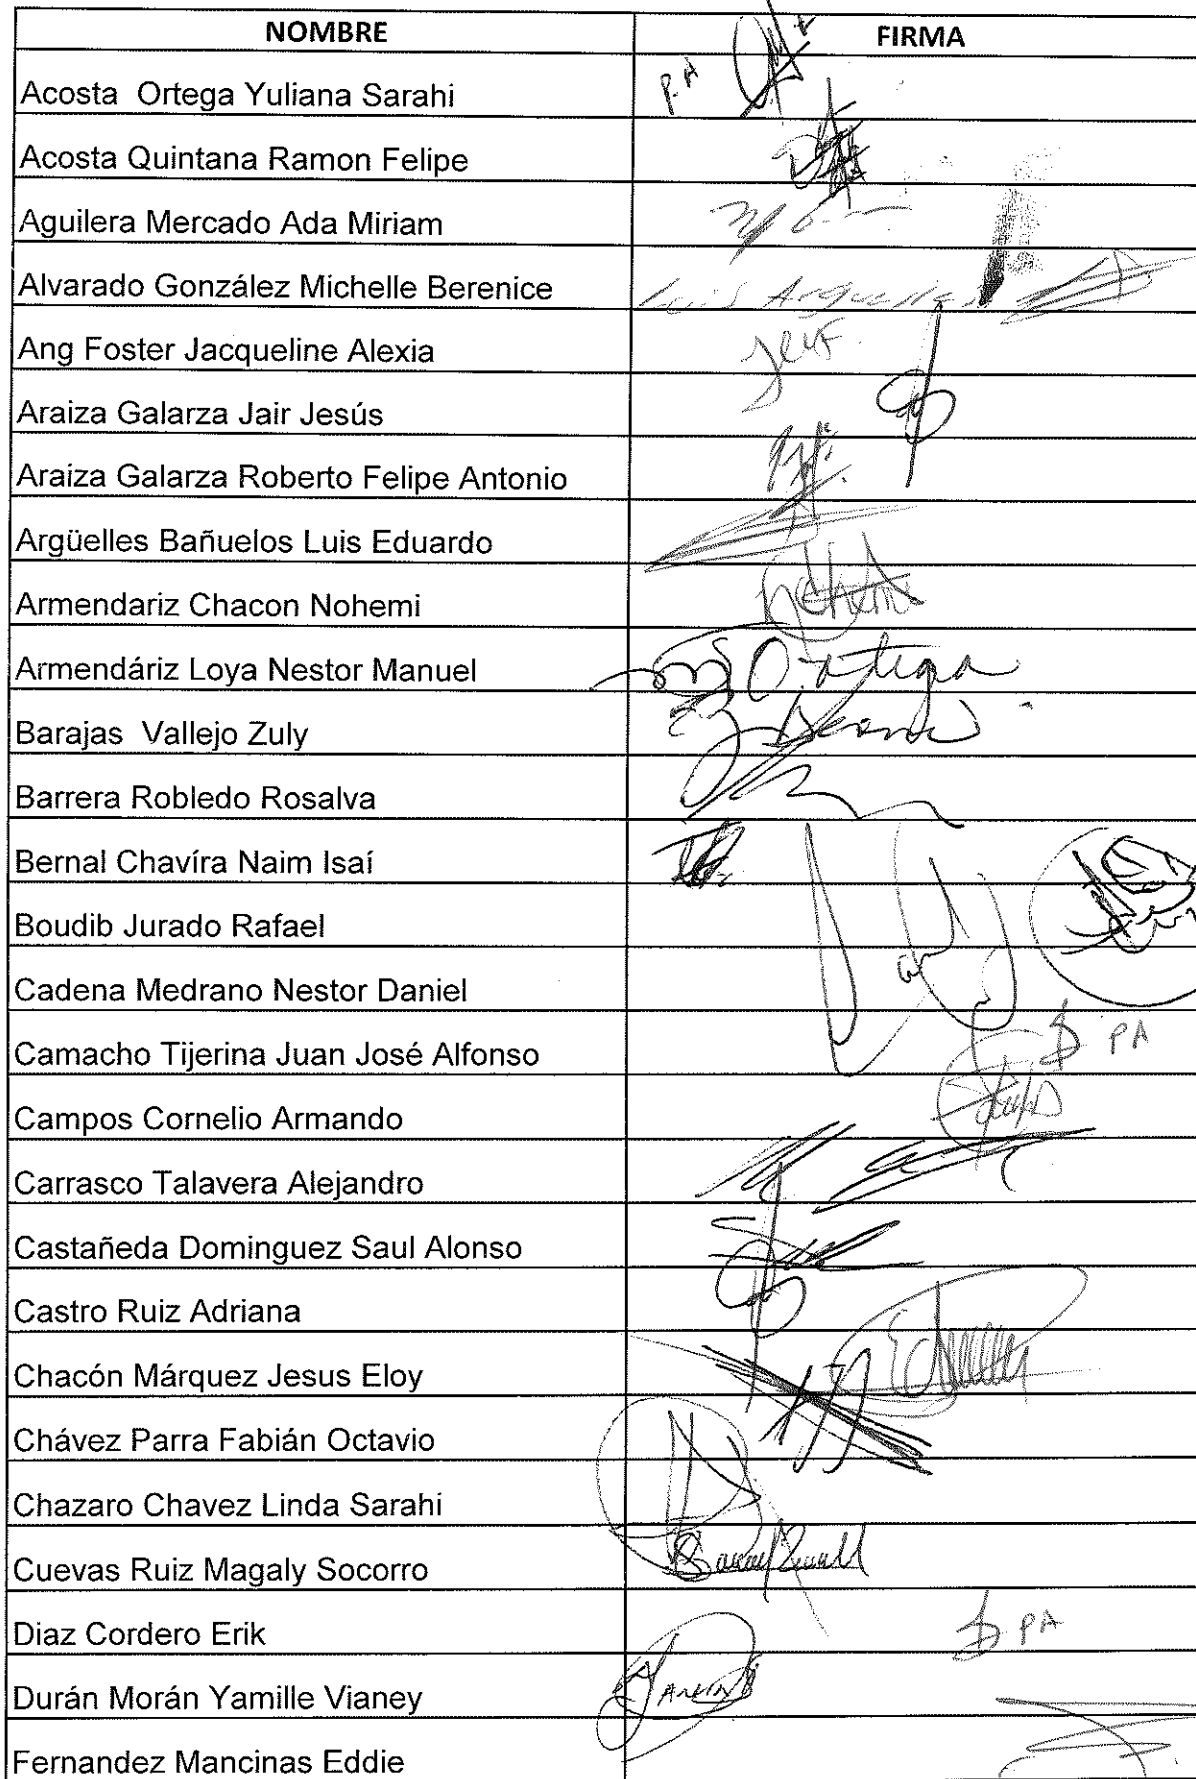 NOMBRE FIRMA
Acosta Ortega Yuliana Sarahi P.A
Acosta Quintana Ramon Felipe
Aguilera Mercado Ada Miriam
Alvarado González Michelle Berenice
Ang Foster Jacqueline Alexia
Araiza Galarza Jair Jesús
Araiza Galarza Roberto Felipe Antonio
Argüelles Bañuelos Luis Eduardo
Armendariz Chacon Nohemi
Armendáriz Loya Nestor Manuel
Barajas Vallejo Zuly
Barrera Robledo Rosalva
Bernal Chavíra Naim Isaí
Boudib Jurado Rafael
Cadena Medrano Nestor Daniel
Camacho Tijerina Juan José Alfonso PA
Campos Cornelio Armando
Carrasco Talavera Alejandro
Castañeda Dominguez Saul Alonso
Castro Ruiz Adriana
Chacón Márquez Jesus Eloy
Chávez Parra Fabián Octavio
Chazaro Chavez Linda Sarahi
Cuevas Ruiz Magaly Socorro
Diaz Cordero Erik PA
Durán Morán Yamille Vianey
Fernandez Mancinas Eddie